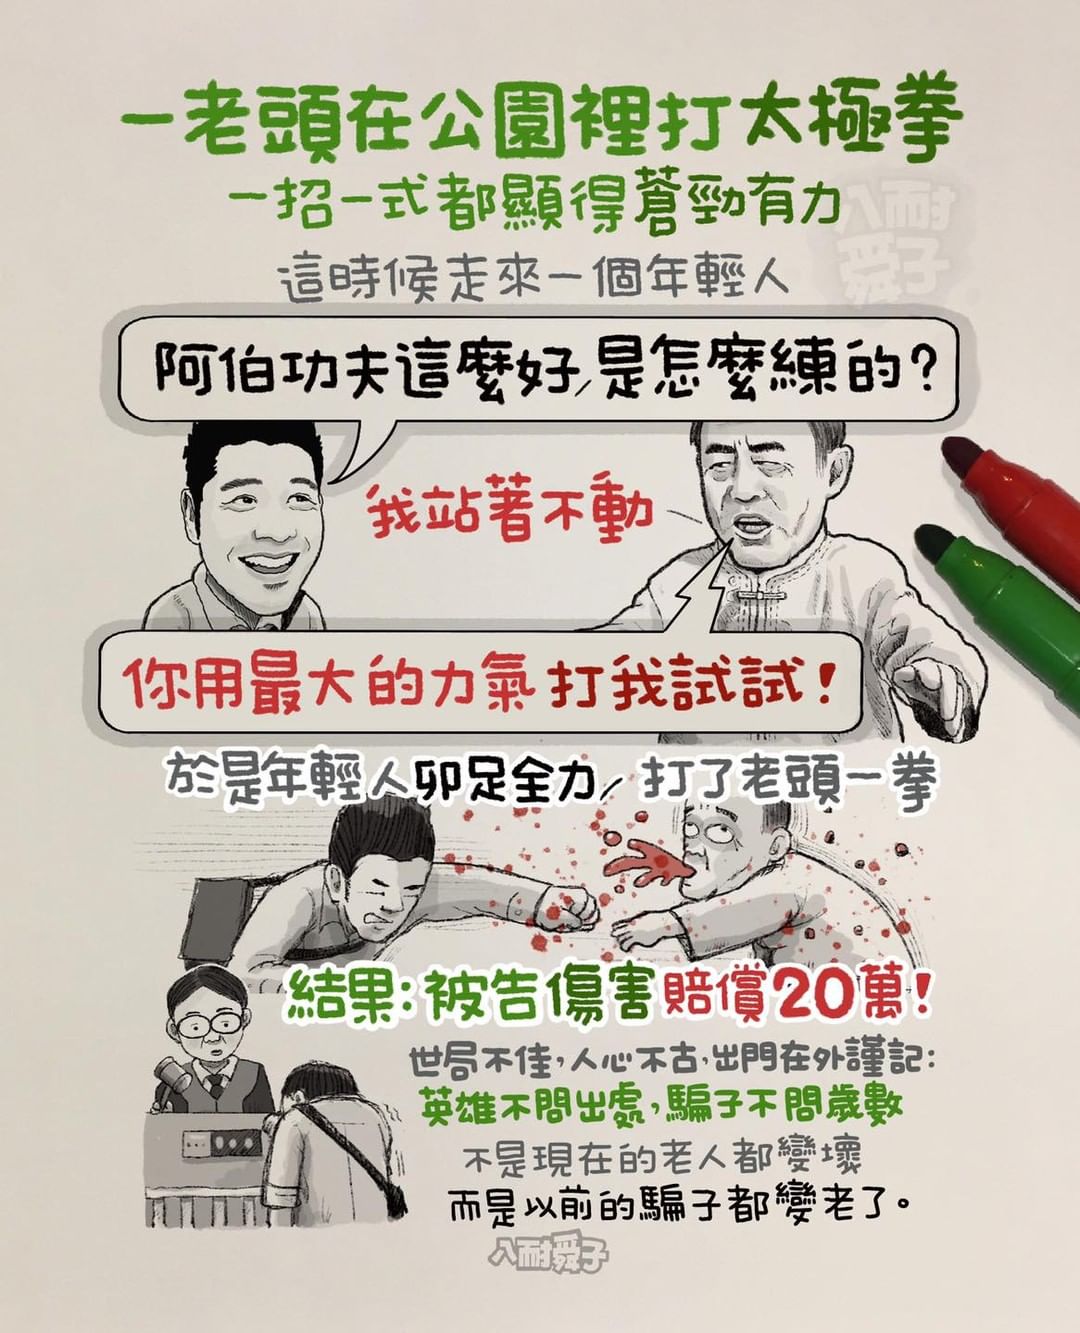 一老頭在公園裡打太極拳
一招一式都顯得蒼勁有力
八耐
舜子
這時候走來一個年輕人
阿伯功夫這麼好,是怎麼練的?
我站著不動
你用最大的力氣打我試試!
於是年輕人卯足全力,打了老頭一拳
結果:被告傷害賠償20萬!
世局不佳,人心不古,出門在外謹記:
英雄不問出處,騙子不問歲數
不是現在的老人都變壞
而是以前的騙子都變老了。
八耐舜子